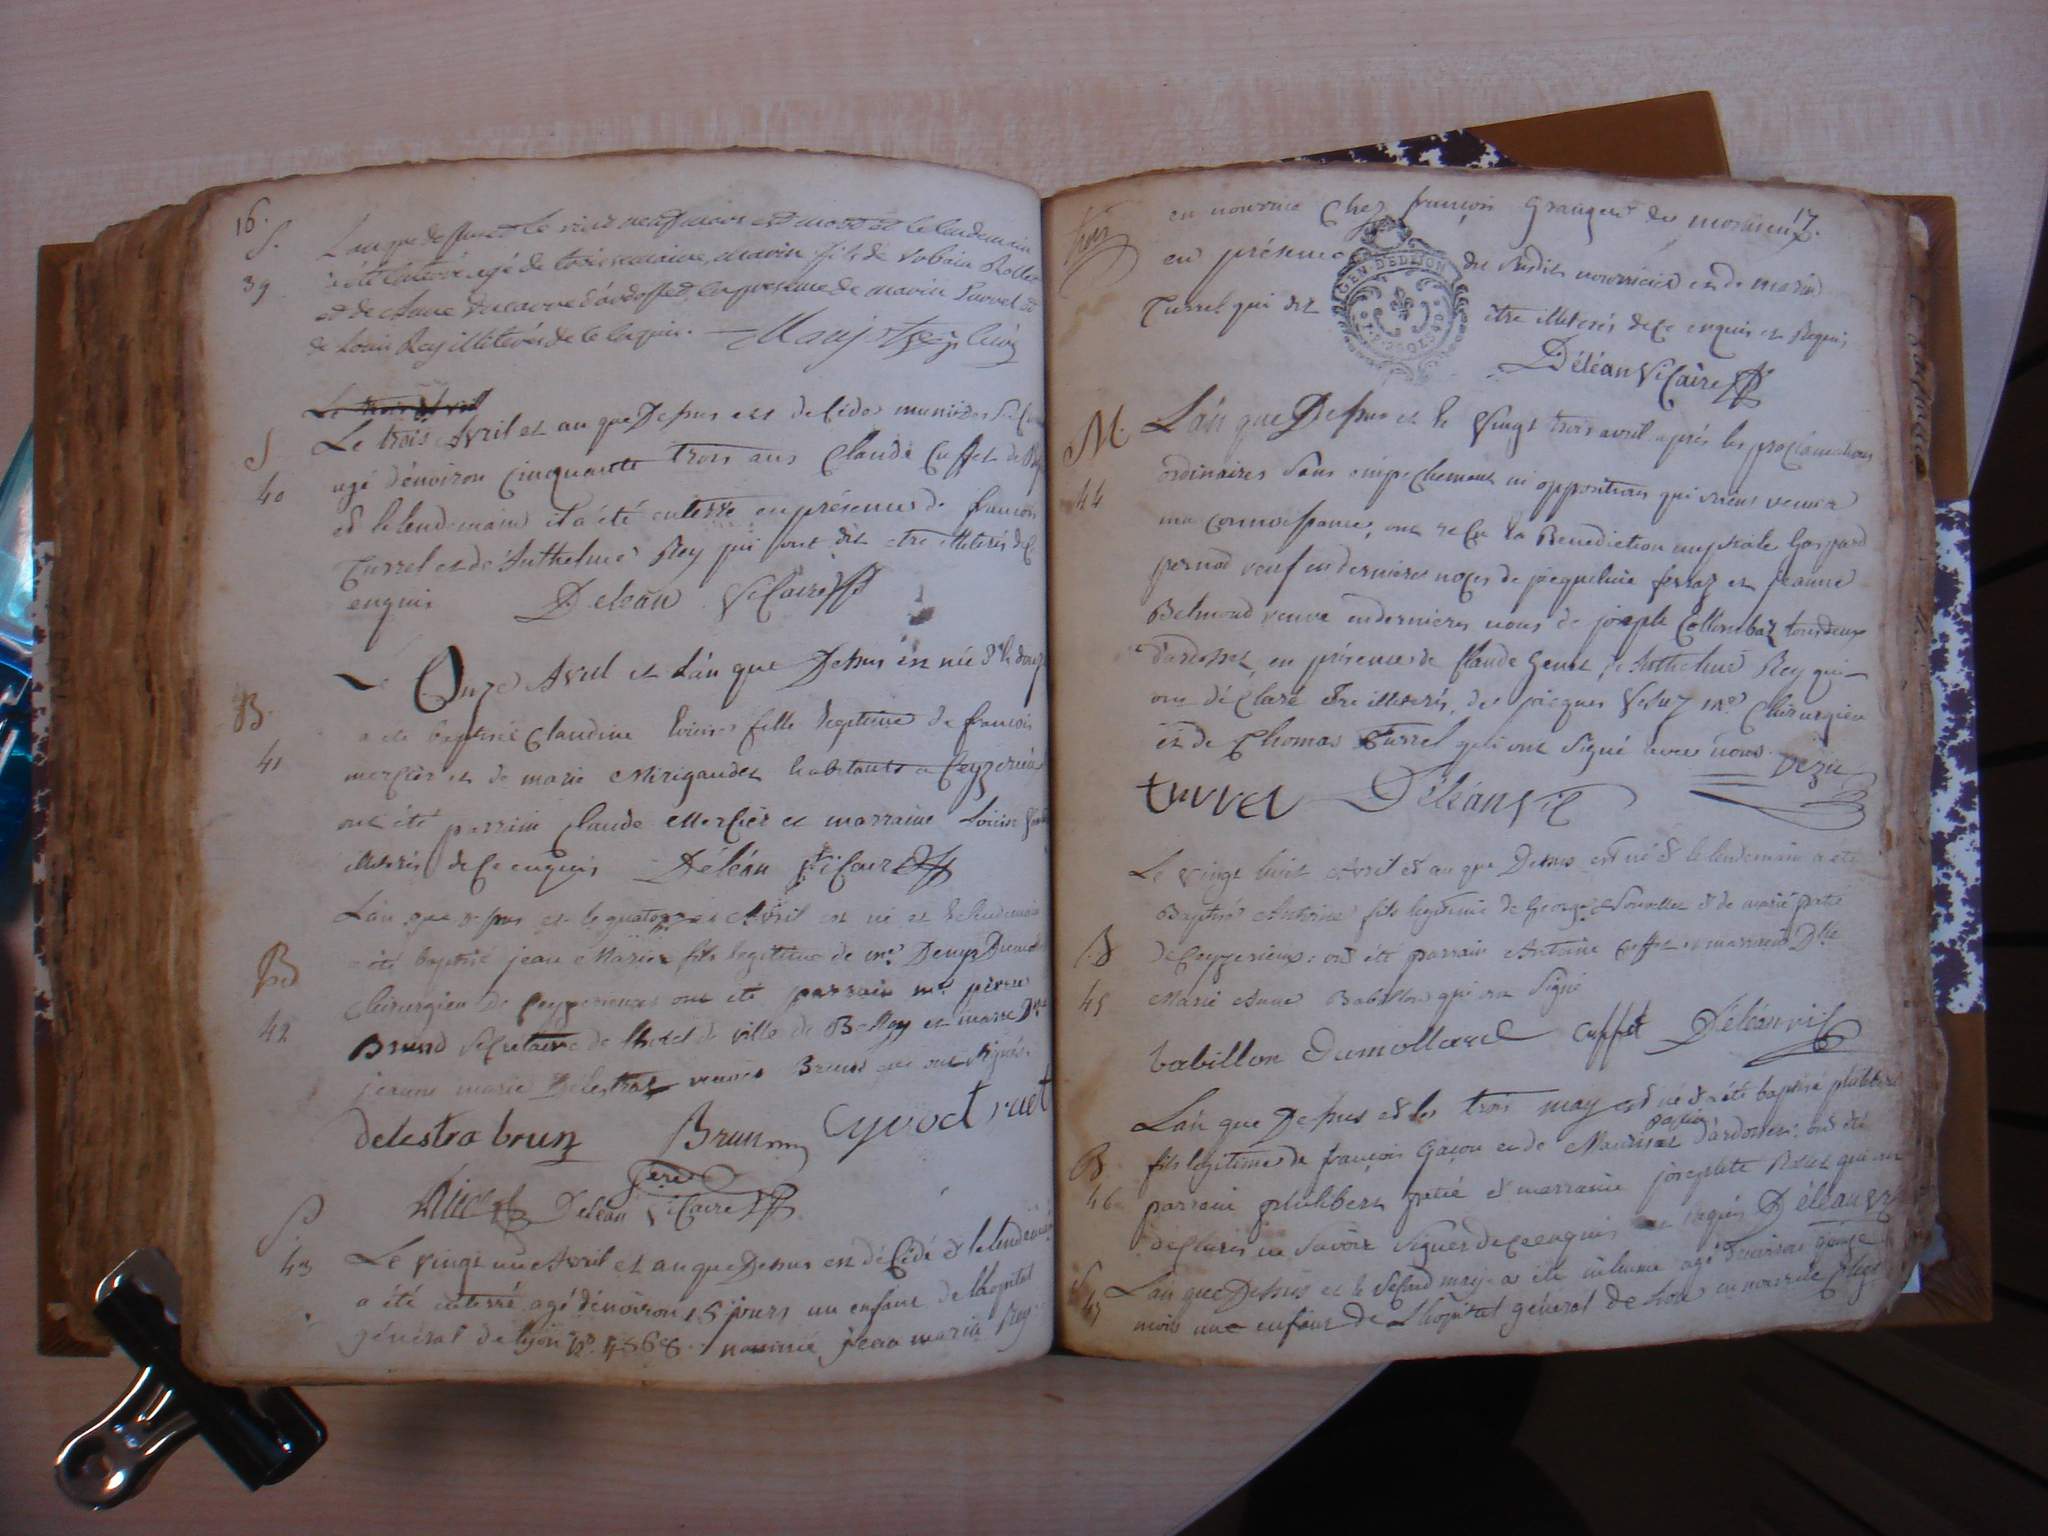 16.
S.
39
L'an que dessus et le vint neuf mars est mort et le lendemain
a été enterré agé de trois semaine, marin fils de
et de d'ardosset, en presence de marin Turrel et
de Louis Rey illiterés de ce enquis.
S
40
Le trois Avril et an que Dessus est decédé muni des
agé d'environ Cinquante trois ans Claude Cuffet de
et le lendemain il a été enterré en présence de francois
Turrel et de Anthelme Rey qui ont dit etre illiterés de ce
enquis Deléan Vicaire
B.
41
Le Onze Avril et L'an que Dessus est née et le douze
a été baptisée Claudine Louise fille legitime de francois
mercier et de marie Mirigaudet habitants a Ceyzerieu
ont été parrain Claude Mercier et marraine Louise
illiterés de ce enquis Déléan Vicaire
B
42
L'an que dessus et le quatorze Avril est né et le lendemain
a été baptisé jean Marie fils legitime de mr. Denys
Chirurgien de Ceyzerieux ont été parrain mr. pierre
Brund Sécretaire de lhotel de ville de Belley et marre Dme
jeanne marie Délestraz veuve Brund qui ont signés.
delestra brun Brun Cyvoct ruet
Deléan Vicaire
S
43
Le vingt un Avril et an que Dessus est décédé et le lendemain
a été enterré agé d'environ 15 jours un enfant de l'hopital
général de lyon no. 4568. nommé jean marie Rey
17.
en nourrice Chez francois Grangeret de
en présence du susdit nourricier et de marin
Turrel qui dit être illiterés de ce enquis et Requis
GEN. DE DIJON
Déléan Vicaire
M.
44
L'an que Dessus et le Vingt trois avril après les proclamations
ordinaires Sans empechement ni opposition qui soient venu a
ma connoissance, ont recu la Benediction nuptiale Gaspard
pernod veuf en dernieres noces de jacqueline ferraz et jeanne
Belmond veuve en dernieres noces de joseph Collombaz tous deux
d'ardosset, en présence de Claude Genet, de Anthelme Rey qui
ont déclaré Etre illiterés, de jacques Vezuz Me. Chirurgien
et de Thomas Turrel qui ont Signé avec nous. Vezu
turrel Déléan Vic
B
45
Le Vingt huit Avril et an que Dessus est né et le lendemain a été
Baptisé Antoine fils legitime de George et de marie
de Ceyzerieux: ont été parrain Antoine Cuffet et marraine Dlle
Marie Anne Babillon qui ont Signé
babillon Dumollard cuffet Déléan vic
B
46
L'an que Dessus et les trois may est né et a été baptisé philibert
fils legitime de françois Gaçon et de d'ardosset: ont été
parrain philibert patié et marraine josephte Rolet qui ont
déclarés ne Savoir Signer de ce enquis et requis Déléan
S
47
L'an que Dessus et le Second may a été inhumé agé d'environ
mois une enfant de L'hopital général de Lion en nourrice Chez